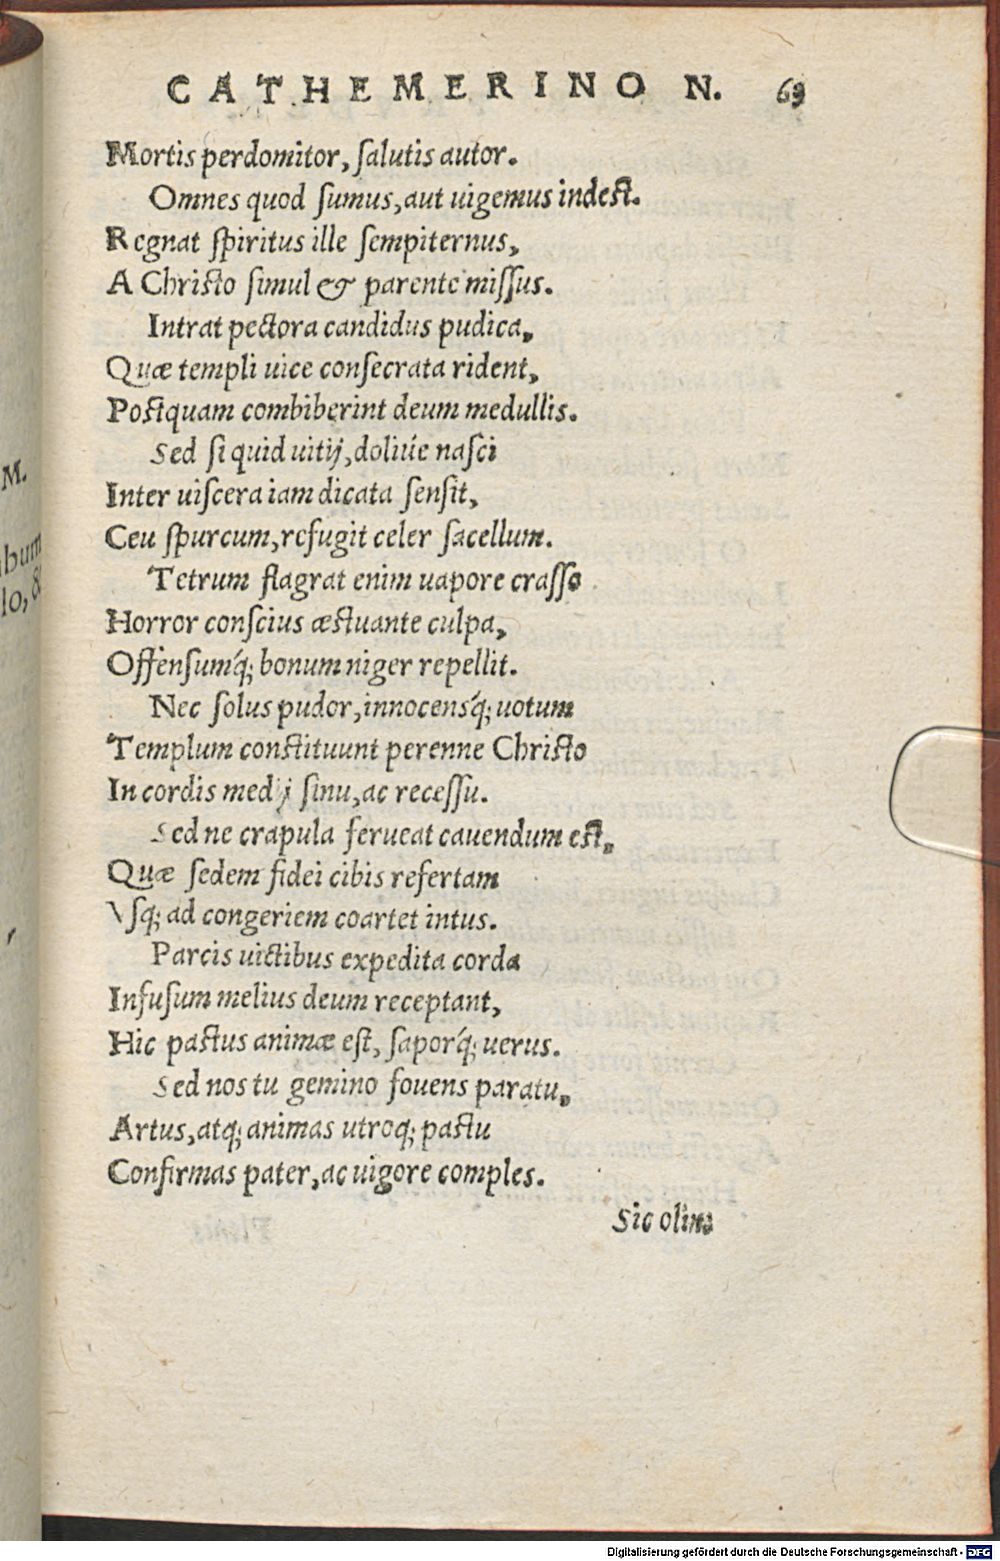 CATHEMERINO N. 69
Mortis perdomitor, ſalutis autor.
Omnes quod ſumus, aut uigemus indeſt.
Regnat ſpiritus ille ſempiternus,
A Chriſto ſimul & parente miſſus.
Intrat pectora candidus pudica,
Quæ templi uice conſecrata rident,
Poſtquam combiberint deum medullis.
Sed ſi quid uitij, doliue naſci
Inter uiſcera iam dicata ſenſit,
Ceu ſpurcum, refugit celer ſacellum.
Tetrum flagrat enim uapore craſſo
Horror conſcius æſtuante culpa,
Offenſumq́; bonum niger repellit.
Nec ſolus pudor, innocensq́; uotum
Templum conſtituunt perenne Chriſto
In cordis medij ſinu, ac receſſu.
Sed ne crapula ferueat cauendum eſt,
Quæ ſedem fidei cibis refertam
Vſq; ad congeriem coartet intus.
Parcis uictibus expedita corda
Infuſum melius deum receptant,
Hic paſtus animæ eſt, ſaporq́; uerus.
Sed nos tu gemino fouens paratu,
Artus, atq; animas utroq; paſtu
Confirmas pater, ac uigore comples.
Sic olim
M.
lo, &
Digitalisierung gefördert durch die Deutsche Forschungsgemeinschaft - DFG